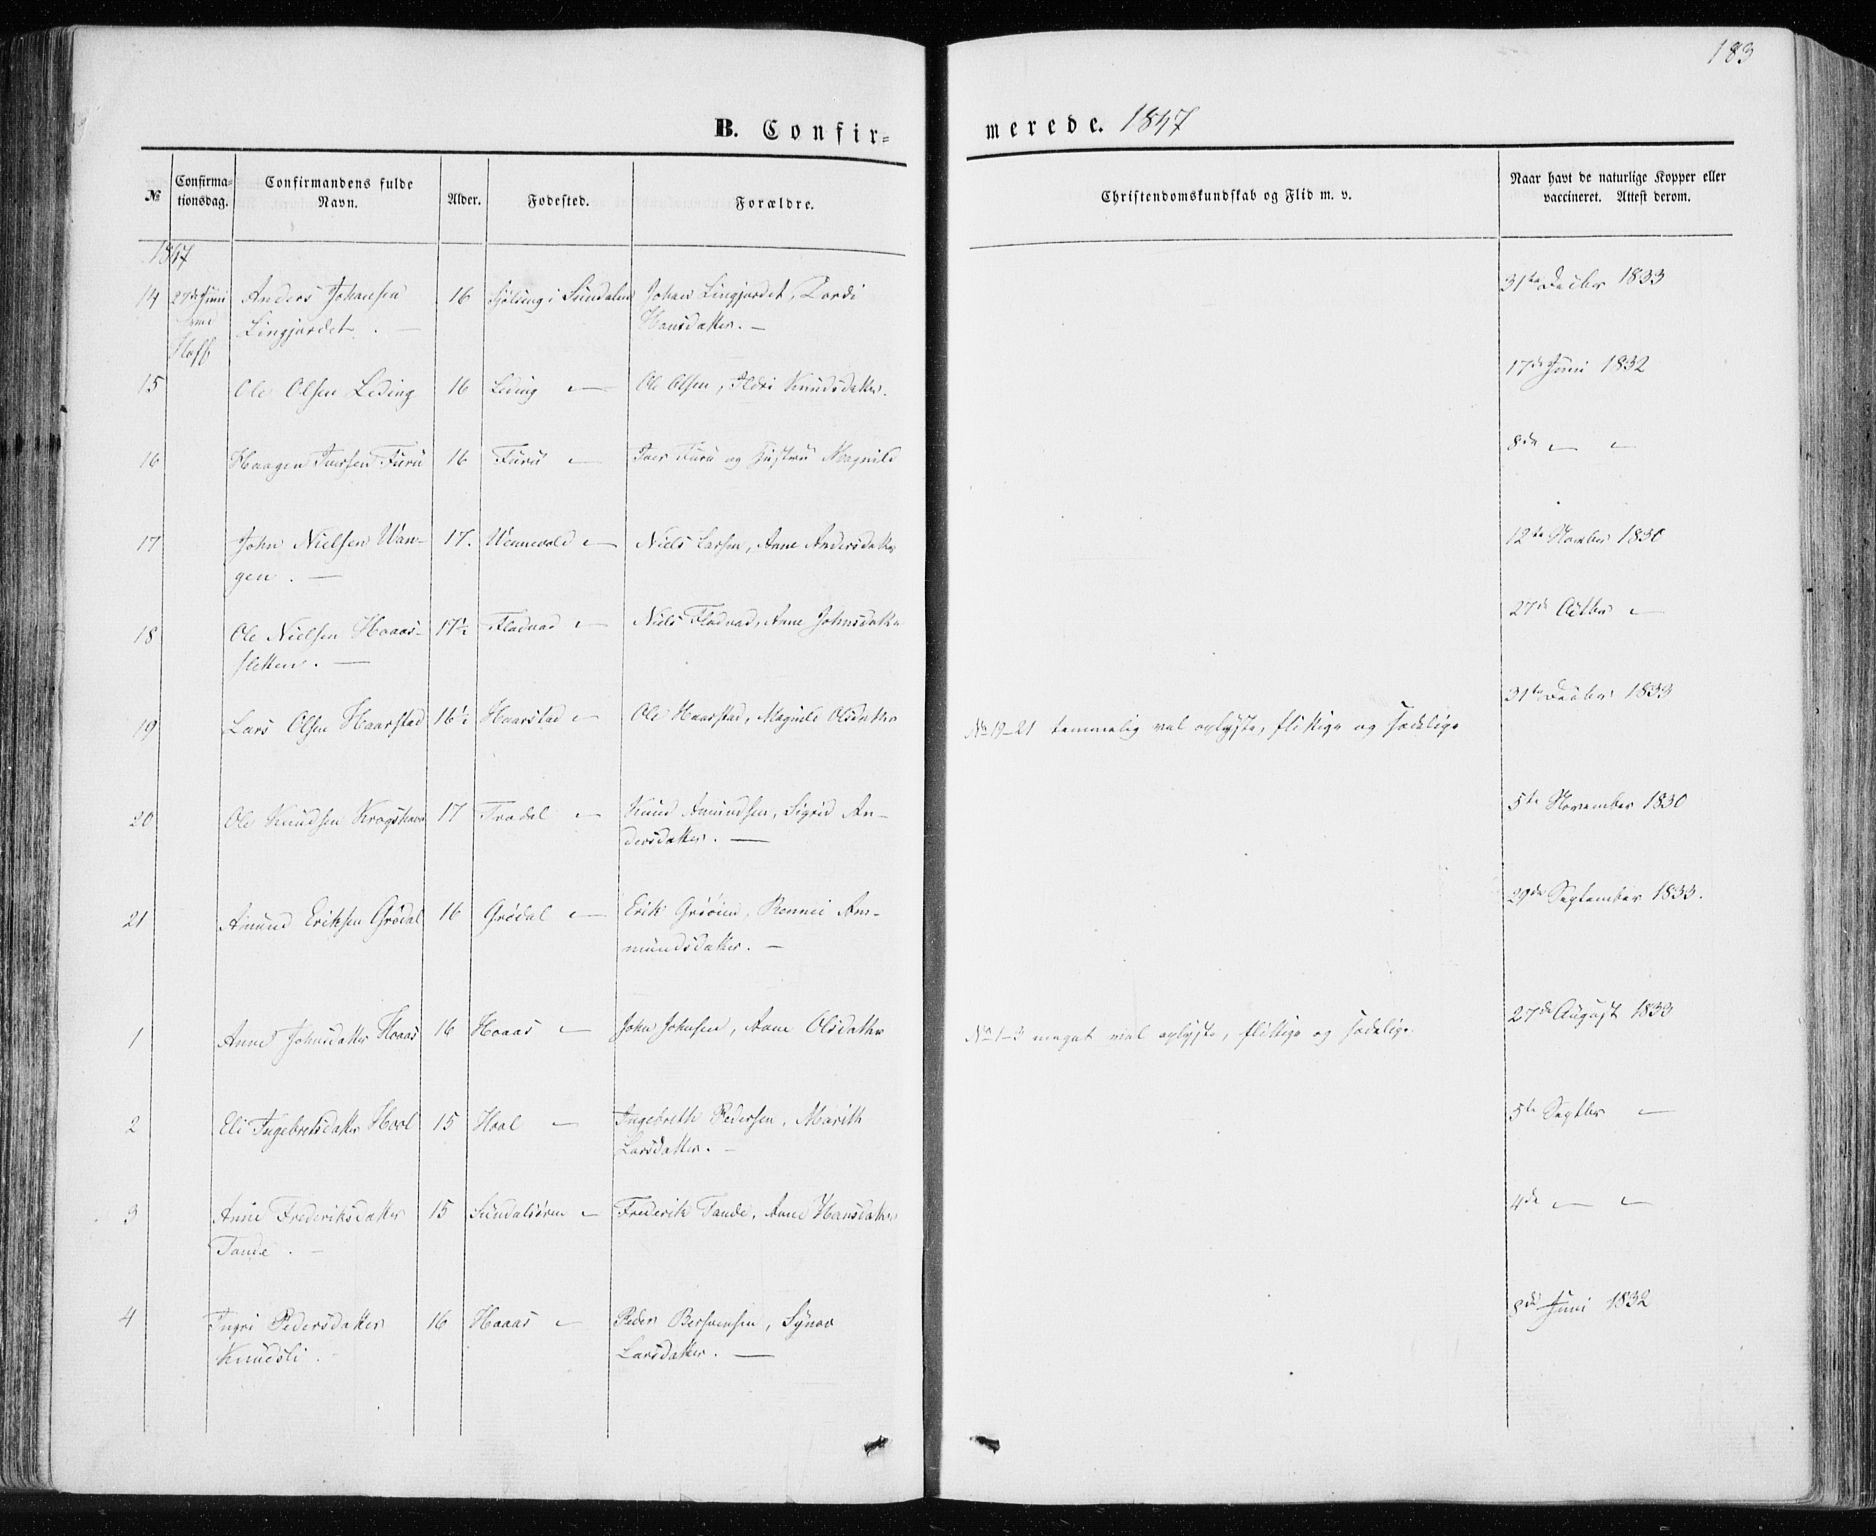 183
B. Confir=
merede. 1847
№
Confirma-
tionsdag.
Confirmandens fulde
Navn.
Alder.
Fødested.
Forældre.
Christendomskundskab og Flid m. v.
Naar havt de naturlige Kopper eller
vaccineret. Attest derom.
1847
14 27de Juni Anders Johansen 16 i Sundalen Johan Lingjordet, Hansdatter. — 31te Decbr 1833
Hoff Lingjordet. —
15 Ole Olsen Leding 16 Leding — Ole Olsen, Ildri Knudsdatter. 17de Juni 1832
16 Haagen Iversen Furu 16 Furu — Iver Furu og Hustru Magnild 8de — —
17 John Nielsen Wan- 17. Vennevold — Niels Larsen, Anne Andersdatter 12te November 1830
gen. —
18 Ole Nielsen Hoaas- 17½ Fladvad — Niels Fladvad, Anne Johnsdatter 27de Octbr —
sletten. —
19 Lars Olsen Haarstad 16½ Haarstad — Ole Haarstad, Magnild Olsdatter No 19-21 temmelig vel oplyste, flittige og sædelige 31te Decbr 1833
20 Ole Knudsen 17 Trædal — Knud Amundsen, Sigrid An- 5te November 1830
dersdatter. —
21 Amund Eriksen Grødal 16 Grødal — Erik Grøien, Rennei Am- 29de September 1833.
mundsdatter. —
1 Anne Johnsdatter Hoaas 16 Hoaas — John Johnsen, Anne Olsdatter No 1-3 meget vel oplyste, flittige og sædelige. 27de August 1833
2 Eli Ingebretsdatter Hool 15 Hool — Ingebreth Pedersen, Marith 5te Septbr —
Larsdatter. —
3 Anne Frederiksdatter 15 Sundalsøren — Frederik Tande, Anne Hansdatter 4de — —
Tande. —
4 Ingri Pedersdatter 16 Hoaas — Peder Bersvensen, Synov 8de Juni 1832
Knudsli. — Larsdatter. —